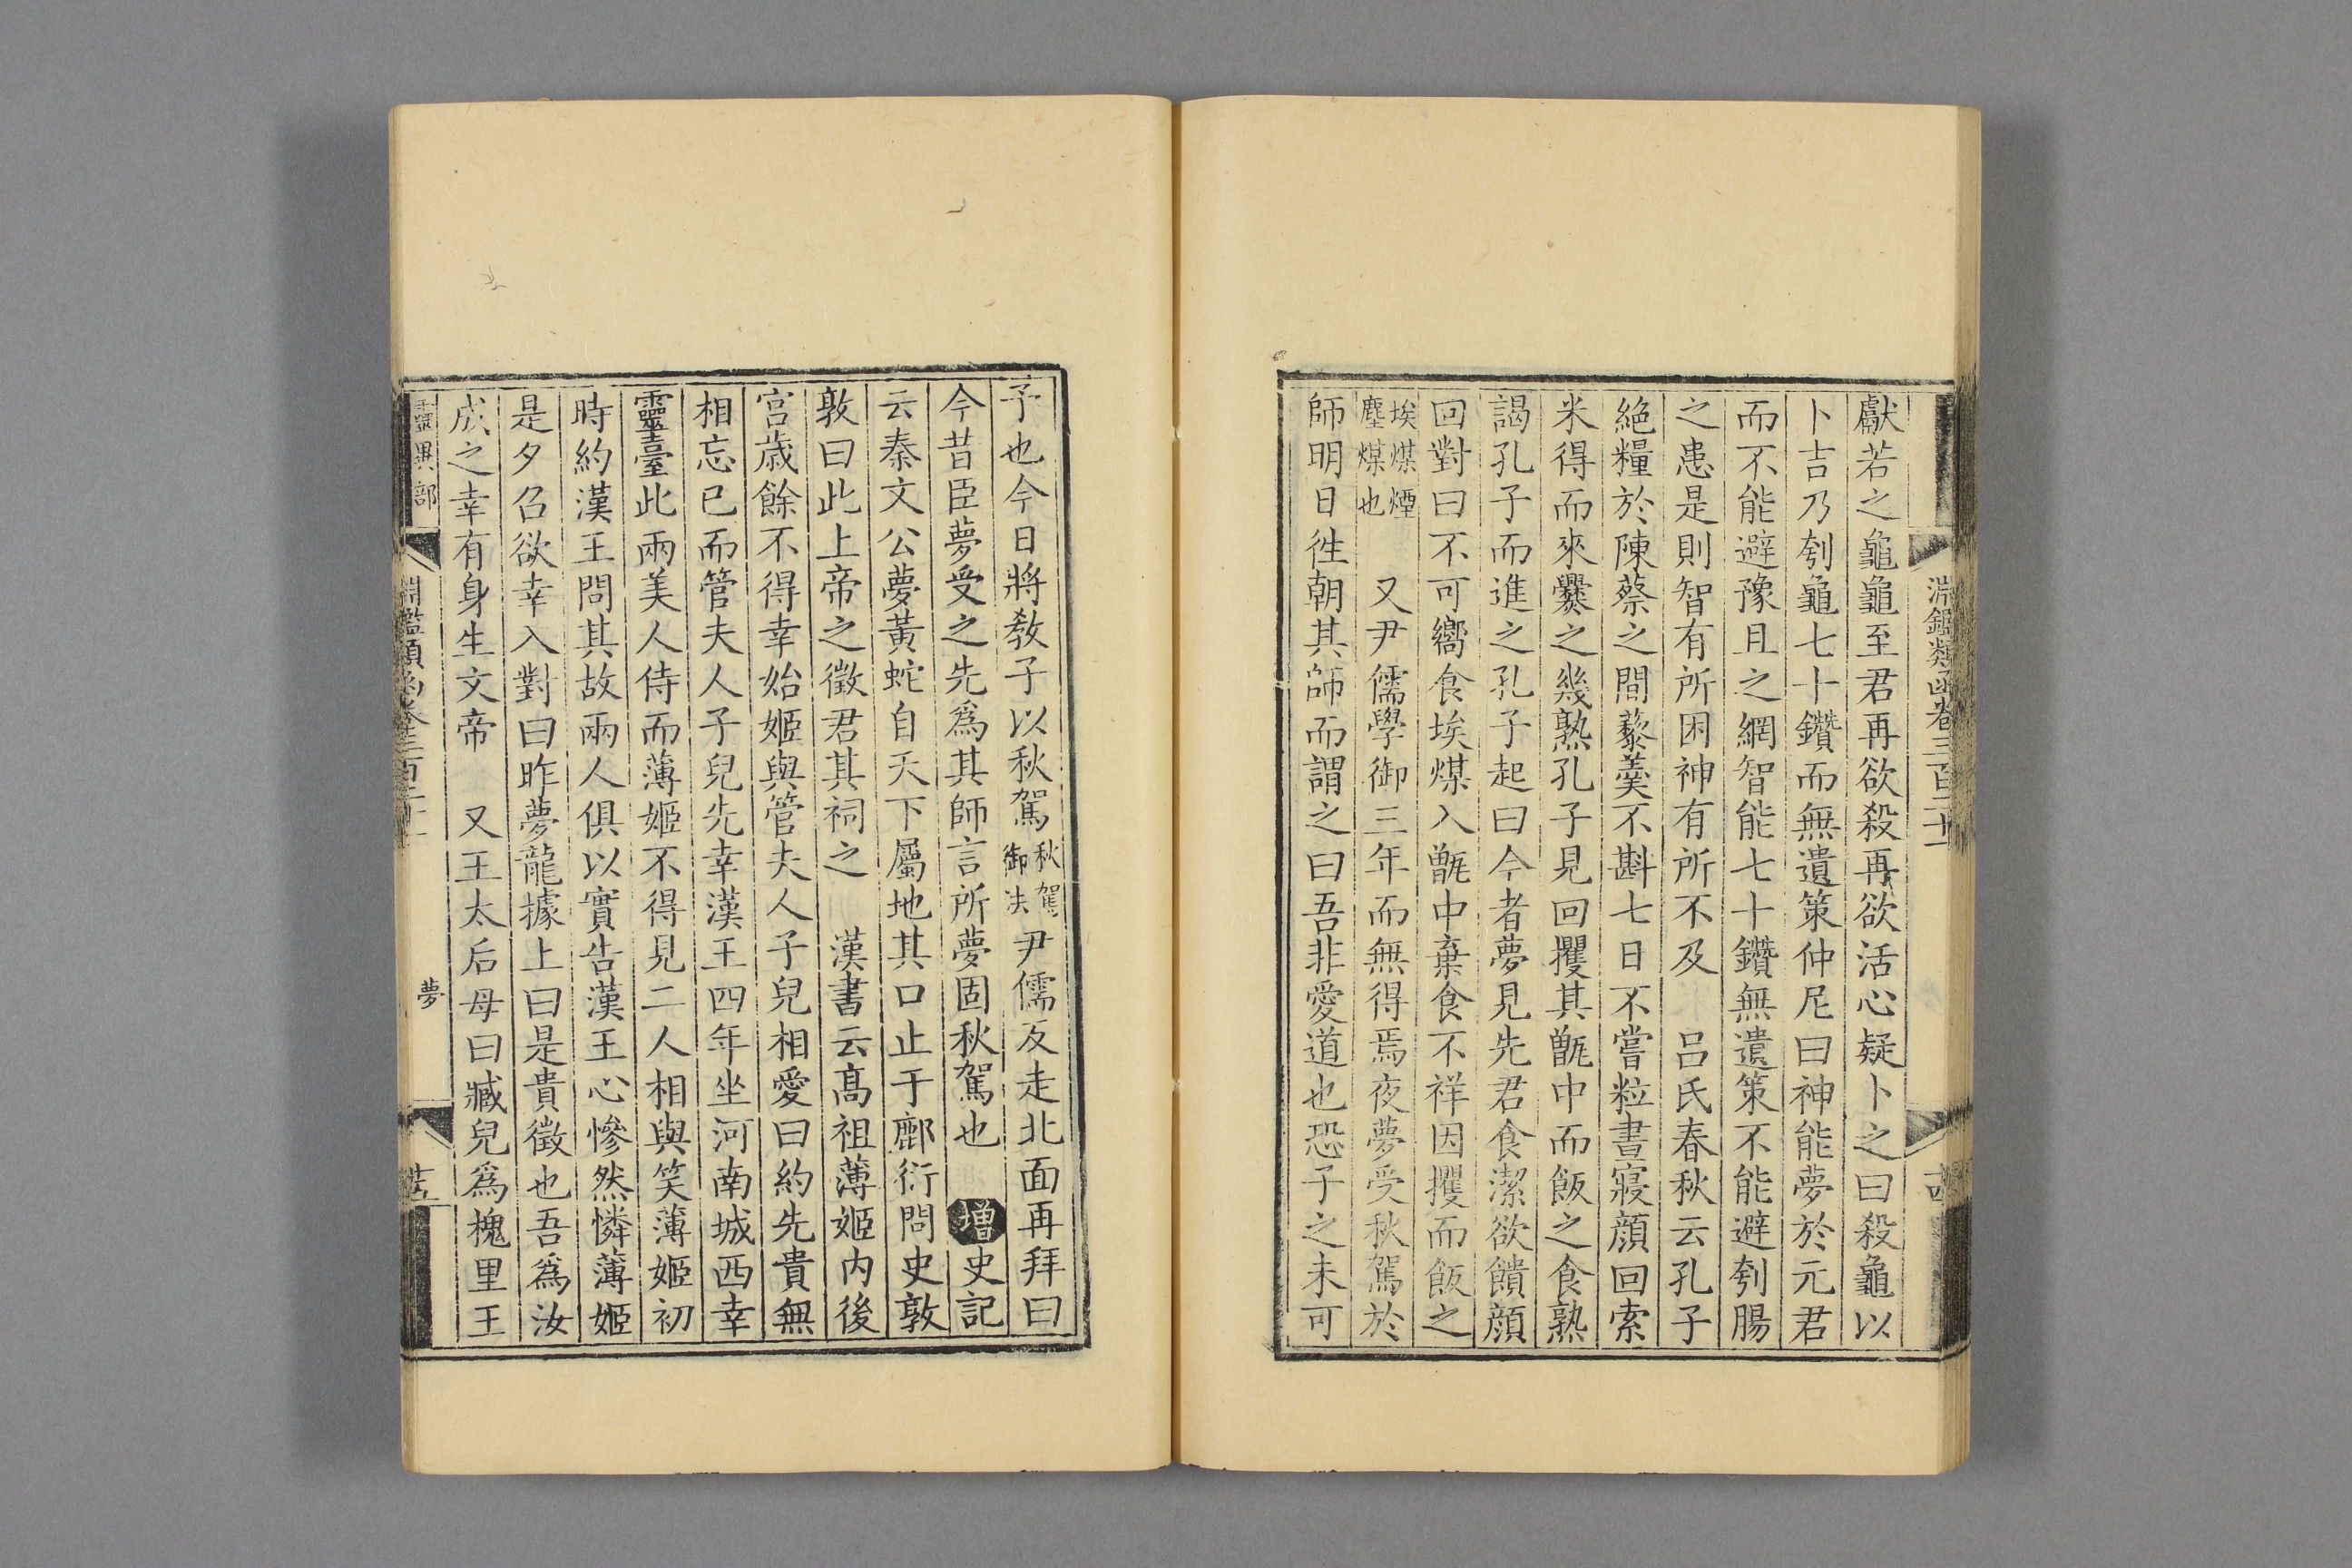 淵鑑類函卷三百二十一
獻若之龜龜至君再欲殺再欲活心疑卜之曰殺龜以
卜吉乃刳龜七十鑽而無遺策仲尼曰神能夢於元君
而不能避豫且之網智能七十鑽無遺策不能避刳腸
之患是則智有所困神有所不及　呂氏春秋云孔子
絕糧於陳蔡之間藜羹不斟七日不嘗粒晝寢顏回索
米得而來爨之幾熟孔子見回攫其甑中而飯之食熟
謁孔子而進之孔子起曰今者夢見先君食潔欲饋顏
回對曰不可嚮食埃煤入甑中棄食不祥因攫而飯之
埃煤煙塵煤也　又尹儒學御三年而無得焉夜夢受秋駕於
師明日徃朝其師而謂之曰吾非愛道也恐子之未可
予也今日將教子以秋駕秋駕御法尹儒反走北面再拜曰
今昔臣夢受之先爲其師言所夢固秋駕也　增史記
云秦文公夢黃蛇自天下屬地其口止于鄜衍問史敦
敦曰此上帝之徵君其祠之　漢書云高祖薄姬內後
宮歲餘不得幸始姬與管夫人子兒相愛曰約先貴無
相忘已而管夫人子兒先幸漢王四年坐河南城西幸
靈臺此兩美人侍而薄姬不得見二人相與笑薄姬初
時約漢王問其故兩人俱以實告漢王心慘然憐薄姬
是夕召欲幸入對曰昨夢龍據上曰是貴徵也吾爲汝
成之幸有身生文帝　又王太后母曰臧兒爲槐里王
靈異部　淵鑑類函卷三百二十一　夢